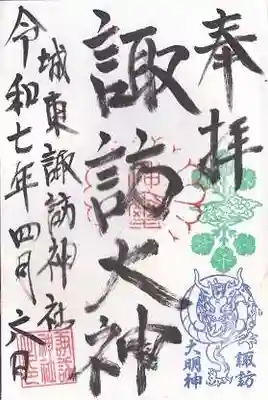 奉拝
諏訪大神
城東諏訪神社
令和七年四月
諏訪
大明神